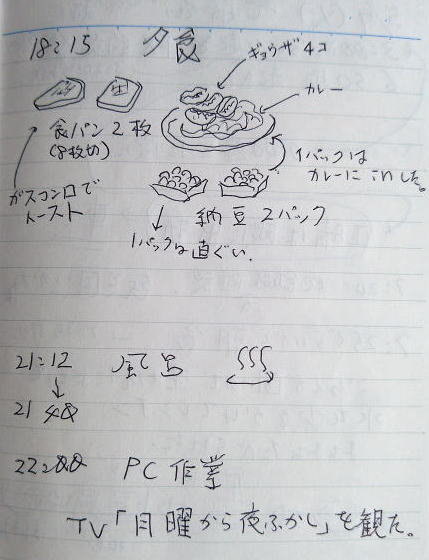 18:15 夕食
ギョウザ4コ
カレー
食パン2枚
(8枚切)
ガスコンロで
トースト
1パックは
カレーに in した。
納豆2パック
1パックは直ぐい.
21:12 風呂
21 40
22:00 PC作業
TV「月曜から夜ふかし」を観た。